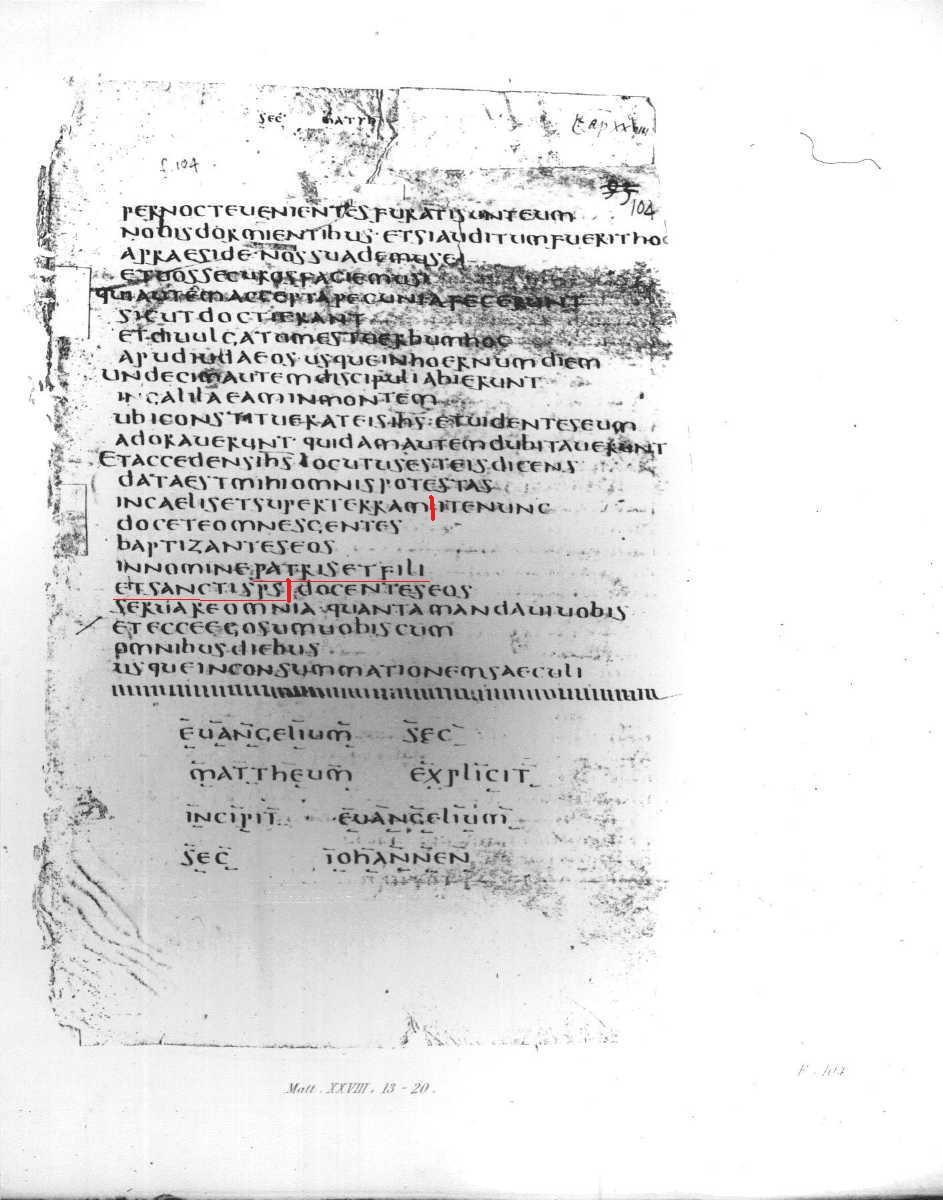 SEC MATTH
Cap XXVIII
f 104
95
104
PERNOCTEUENIENTESFURATISUNTEUM
NOBISDORMIENTIBUS· ETSIAUDITUMFUERITHOC
APRAESIDE· NOSSUADEMUSEI
ETUOSSECUROSFACIEMUS·
QUIAUTEMACCEPTAPECUNIAFECERUNT
SICUTDOCTIERANT
ETDIUULGATUMESTUERBUMHOC
APUDIUDAEOS USQUEINHOERNUMDIEM
UNDECIMAUTEMDISCIPULIABIERUNT
IN GALILAEAMINMONTEM
UBICONSTITUERATEIS·IHS· ETUIDENTESEUM
ADORAUERUNT· QUIDAMAUTEMDUBITAUERUNT
ETACCEDENSIHS LOCUTUSESTEISDICENS
DATAESTMIHIOMNISPOTESTAS
INCAELISETSUPERTERRAM ITENUNC
DOCETEOMNESGENTES
BAPTIZANTESEOS
INNOMINE·PATRISETFILI
ETSANCTISPS DOCENTESEOS
SERUAREOMNIA·QUANTAMANDAUIUOBIS
ETECCEEGOSUMUOBISCUM
OMNIBUSDIEBUS
USQUEINCONSUMMATIONEMSAECULI
EUANGELIUM SEC
MATTHEUM EXPLICIT
INCIPIT EUANGELIUM
SEC IOHANNEN
Matt. XXVIII. 13 - 20.
F. 104